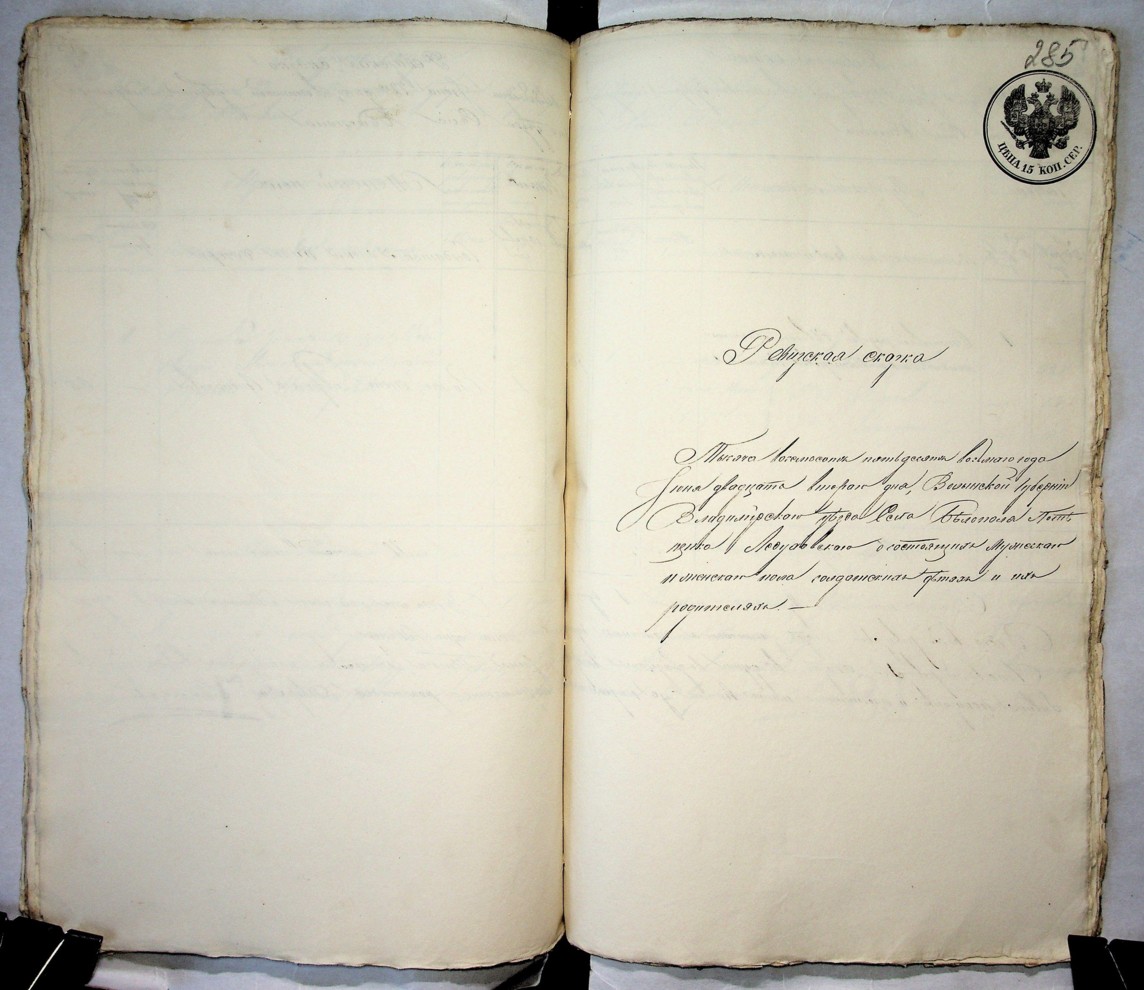 285
ЦѢНА 15 КОП. СЕР.
Ревизская сказка
Тысяча восемьсотъ пятьдесятъ восьмаго года
Іюня двадцать втораго дня, Волынской Губерніи
Владимірскаго уѣзда Села Бѣлополя
о состоящихъ Мужескаго
и женскаго пола солдатскихъ дѣтяхъ и ихъ
родителяхъ. —